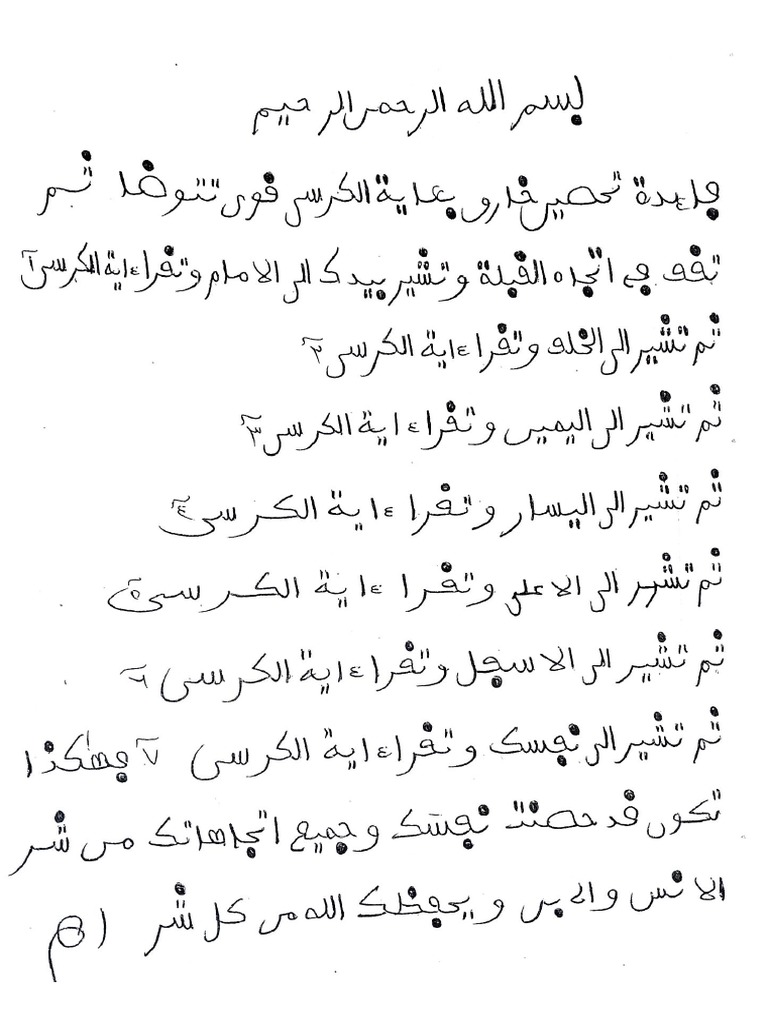 بسم الله الرحمن الرحيم
فاءدة تحصين خارق بءاية الكرسي قوي تتوضا ثم
تقف في اتجاه القبلة وتشير بيدك الى الامام وتقرا ءاية الكرسي ١
ثم تشير الى الخلف وتقرا ءاية الكرسي ٢
ثم تشير الى اليمين وتقرا ءاية الكرسي ٣
ثم تشير الى اليسار وتقرا ءاية الكرسي ٤
ثم تشير الى الاعلى وتقرا ءاية الكرسي ٥
ثم تشير الى الاسفل وتقرا ءاية الكرسي ٦
ثم تشير الى نفسك وتقرا ءاية الكرسي ٧ فهكذا
تكون قد حصنت نفسك وجميع اتجاهاتك من شر
الانس والجن ويحفظك الله من كل شر اهم